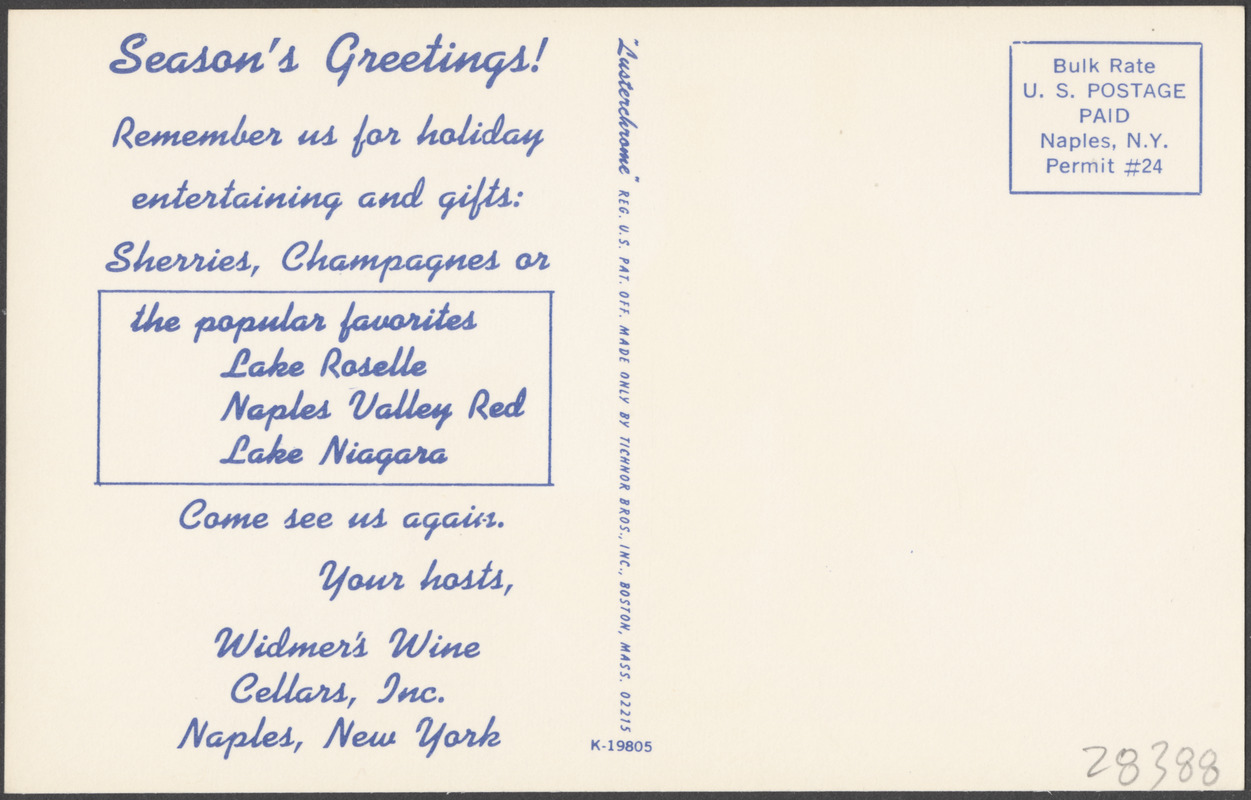 Season's Greetings!
Remember us for holiday
entertaining and gifts:
Sherries, Champagnes or
the popular favorites
Lake Roselle
Naples Valley Red
Lake Niagara
Come see us again.
Your hosts,
Widmer's Wine
Cellars, Inc.
Naples, New York
"Lusterchrome" REG. U.S. PAT. OFF. MADE ONLY BY TICHNOR BROS., INC., BOSTON, MASS. 02215
K-19805
Bulk Rate
U. S. POSTAGE
PAID
Naples, N.Y.
Permit #24
28388